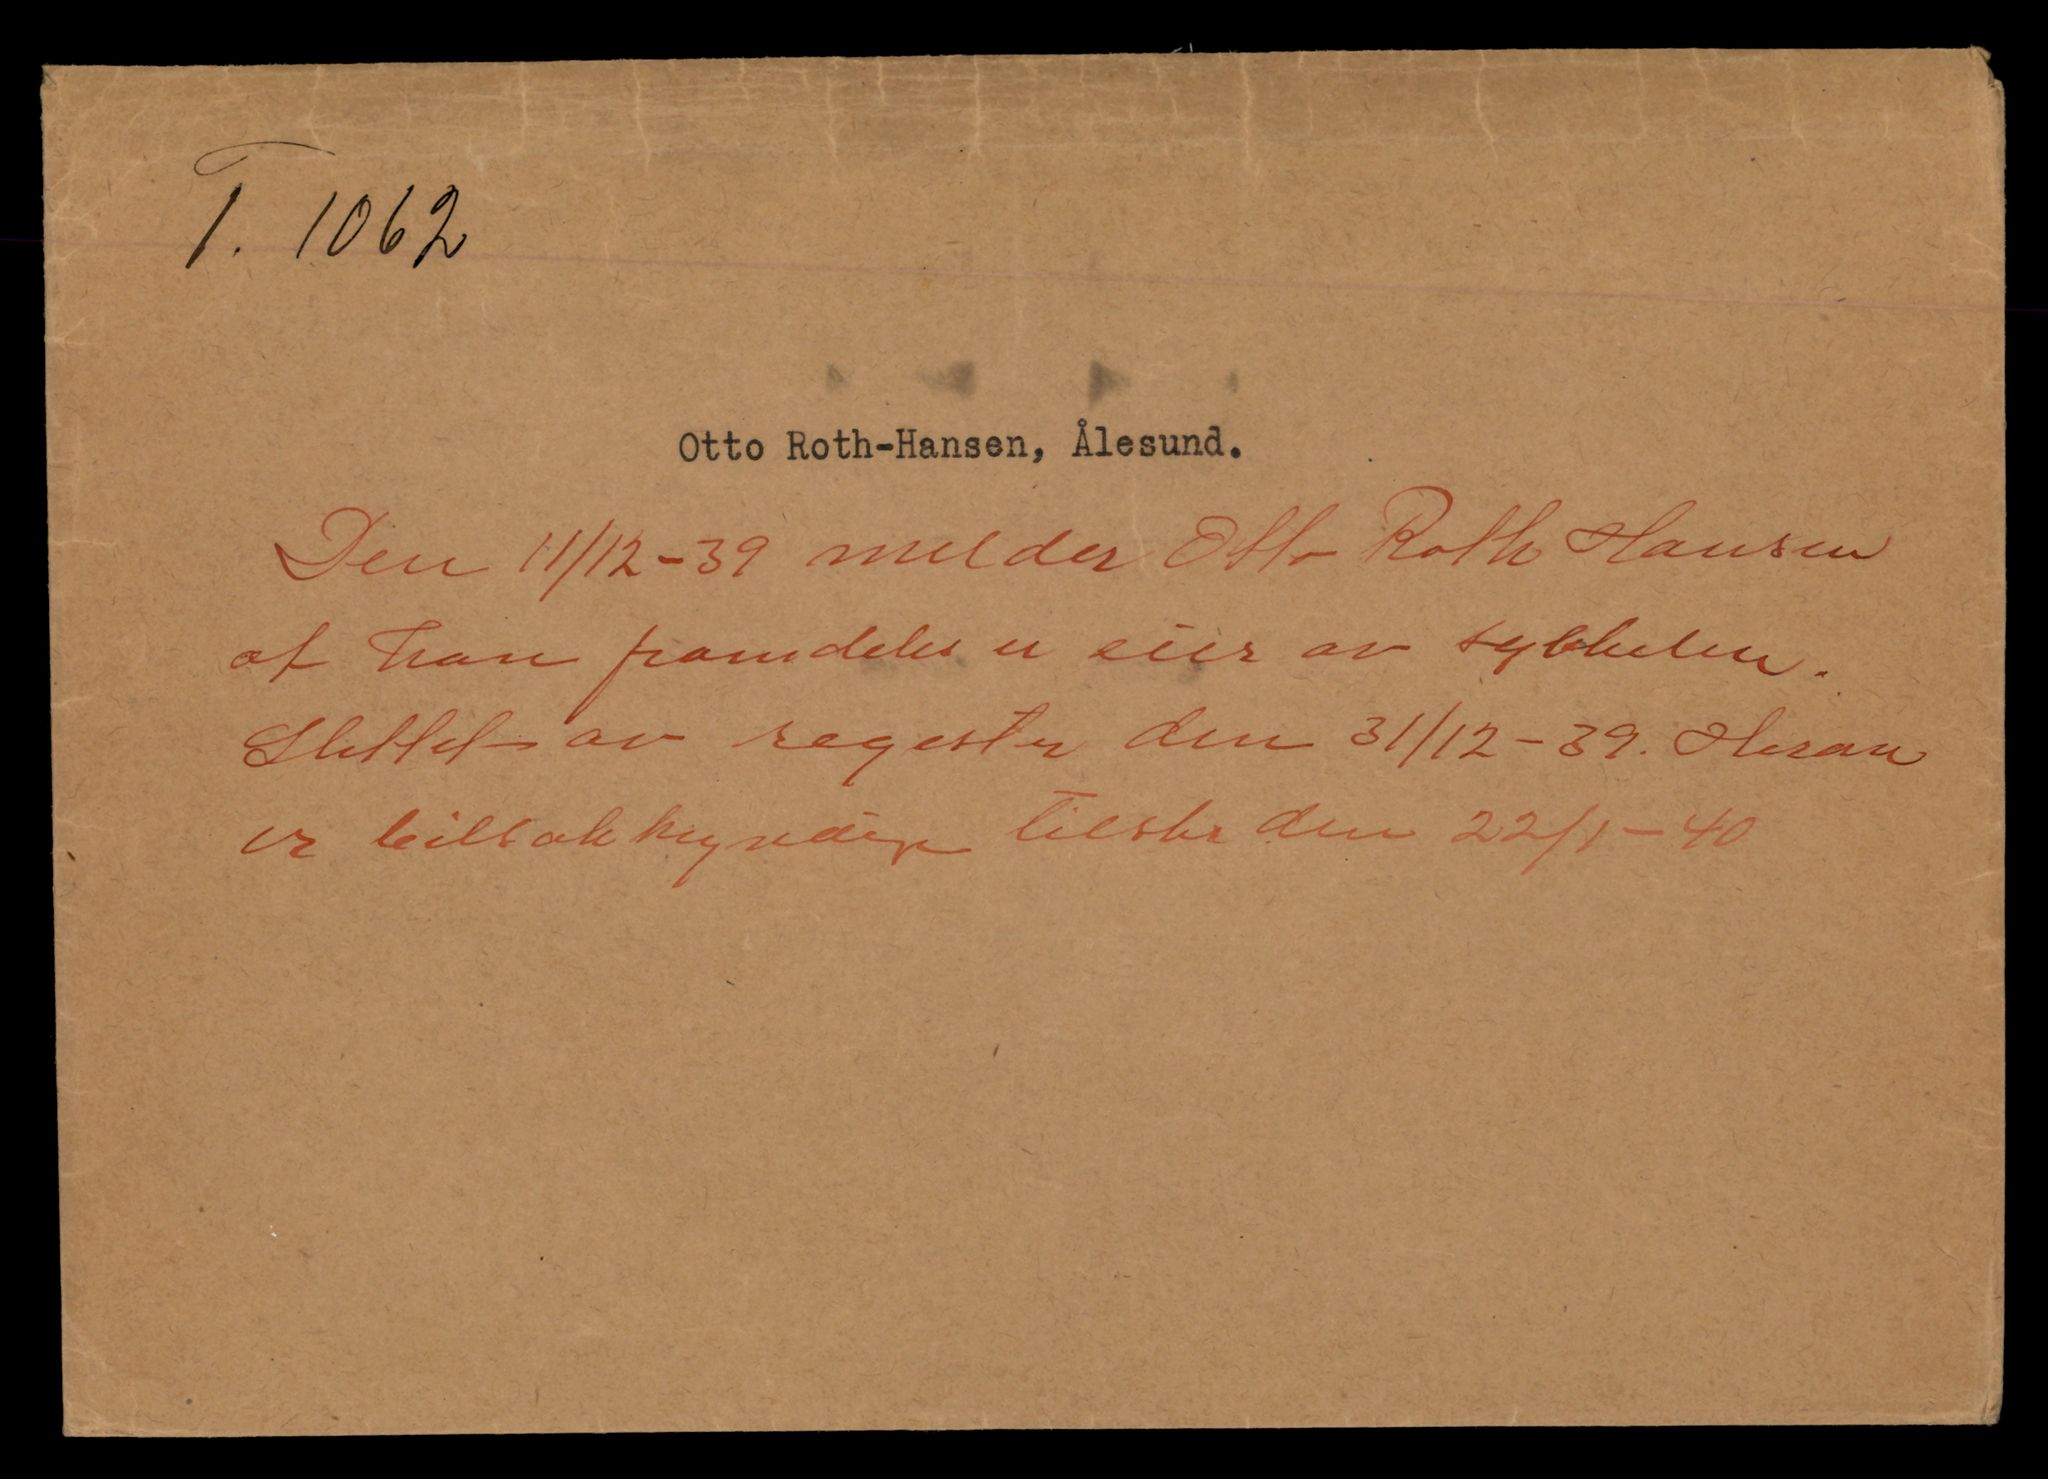 T. 1062
Otto Roth-Hansen, Ålesund.
Den 11/12-39 melder Otto Roth Hansen
at han framdeles er eier av sykkelen.
Slettet av register den 31/12-39. Herav
er bilsakkyndige tilskr den 22/1-40